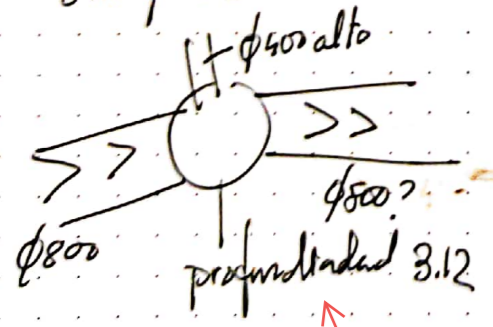 φ400 alto
>>
>>
φ800
φ800?
profundidad 3.12